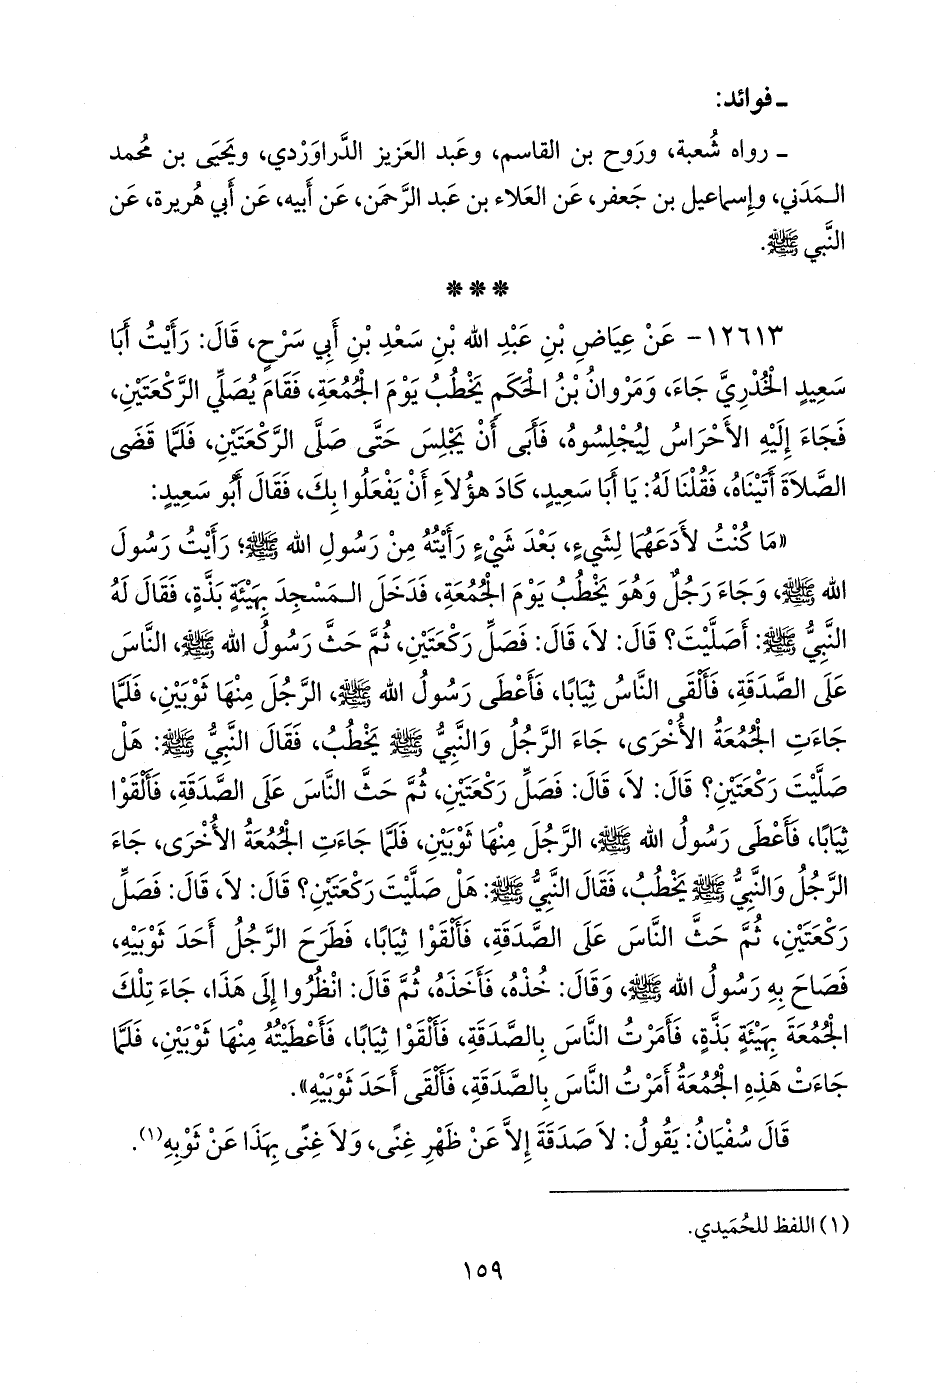 ـ فوائد:
ـ رواه شُعبة، ورَوح بن القاسم، وعَبد العَزيز الدَّراوَرْدي، ويَحيَى بن مُحمد
المَدَني، وإِسماعيل بن جَعفر، عَن العَلاء بن عَبد الرَّحمَن، عَن أَبيه، عَن أَبي هُريرة، عَن
النَّبي ﷺ.
* * *
١٢٦١٣- عَنْ عِيَاضِ بْنِ عَبْدِ الله بْنِ سَعْدِ بْنِ أَبِي سَرْحٍ، قَالَ: رَأَيْتُ أَبَا
سَعِيدٍ الْخُدْرِيَّ جَاءَ، وَمَرْوانُ بْنُ الْحَكَمِ يَخْطُبُ يَوْمَ الْجُمُعَةِ، فَقَامَ يُصَلِّي الرَّكْعَتَيْنِ،
فَجَاءَ إِلَيْهِ الأَحْرَاسُ لِيُجْلِسُوهُ، فَأَبَى أَنْ يَجْلِسَ حَتَّى صَلَّى الرَّكْعَتَيْنِ، فَلَمَّا قَضَى
الصَّلاَةَ أَتَيْنَاهُ، فَقُلْنَا لَهُ: يَا أَبَا سَعِيدٍ، كَادَ هؤُلاَءِ أَنْ يَفْعَلُوا بِكَ، فَقَالَ أَبُو سَعِيدٍ:
«مَا كُنْتُ لأَدَعَهُمَا لِشَيءٍ، بَعْدَ شَيْءٍ رَأَيْتُهُ مِنْ رَسُولِ الله ﷺ؛ رَأَيْتُ رَسُولَ
الله ﷺ، وَجَاءَ رَجُلٌ وَهُوَ يَخْطُبُ يَوْمَ الْجُمُعَةِ، فَدَخَلَ الـمَسْجِدَ بِهَيْئَةٍ بَذَّةٍ، فَقَالَ لَهُ
النَّبِيُّ ﷺ: أَصَلَّيْتَ؟ قَالَ: لاَ، قَالَ: فَصَلِّ رَكْعَتَيْنِ، ثُمَّ حَثَّ رَسُولُ الله ﷺ، النَّاسَ
عَلَى الصَّدَقَةِ، فَأَلْقَى النَّاسُ ثِيَابًا، فَأَعْطَى رَسُولُ الله ﷺ، الرَّجُلَ مِنْهَا ثَوْبَيْنِ، فَلَمَّا
جَاءَتِ الْجُمُعَةُ الأُخْرَى، جَاءَ الرَّجُلُ وَالنَّبِيُّ ﷺ يَخْطُبُ، فَقَالَ النَّبِيُّ ﷺ: هَلْ
صَلَّيْتَ رَكْعَتَيْنِ؟ قَالَ: لاَ، قَالَ: فَصَلِّ رَكْعَتَيْنِ، ثُمَّ حَثَّ النَّاسَ عَلَى الصَّدَقَةِ، فَأَلْقَوْا
ثِيَابًا، فَأَعْطَى رَسُولُ الله ﷺ، الرَّجُلَ مِنْهَا ثَوْبَيْنِ، فَلَمَّا جَاءَتِ الْجُمُعَةُ الأُخْرَى، جَاءَ
الرَّجُلُ وَالنَّبِيُّ ﷺ يَخْطُبُ، فَقَالَ النَّبِيُّ ﷺ: هَلْ صَلَّيْتَ رَكْعَتَيْنِ؟ قَالَ: لاَ، قَالَ: فَصَلِّ
رَكْعَتَيْنِ، ثُمَّ حَثَّ النَّاسَ عَلَى الصَّدَقَةِ، فَأَلْقَوْا ثِيَابًا، فَطَرَحَ الرَّجُلُ أَحَدَ ثَوْبَيْهِ،
فَصَاحَ بِهِ رَسُولُ الله ﷺ، وَقَالَ: خُذْهُ، فَأَخَذَهُ، ثُمَّ قَالَ: انْظُرُوا إِلَى هَذَا، جَاءَ تِلْكَ
الْجُمُعَةَ بِهَيْئَةٍ بَذَّةٍ، فَأَمَرْتُ النَّاسَ بِالصَّدَقَةِ، فَأَلْقَوْا ثِيَابًا، فَأَعْطَيْتُهُ مِنْهَا ثَوْبَيْنِ، فَلَمَّا
جَاءَتْ هَذِهِ الْجُمُعَةُ أَمَرْتُ النَّاسَ بِالصَّدَقَةِ، فَأَلْقَى أَحَدَ ثَوْبَيْهِ».
قَالَ سُفْيَانُ: يَقُولُ: لاَ صَدَقَةَ إِلاَّ عَنْ ظَهْرِ غِنًى، وَلاَ غِنًى بِهَذَا عَنْ ثَوْبِهِ(١).
(١) اللفظ للحُمَيدي.
١٥٩